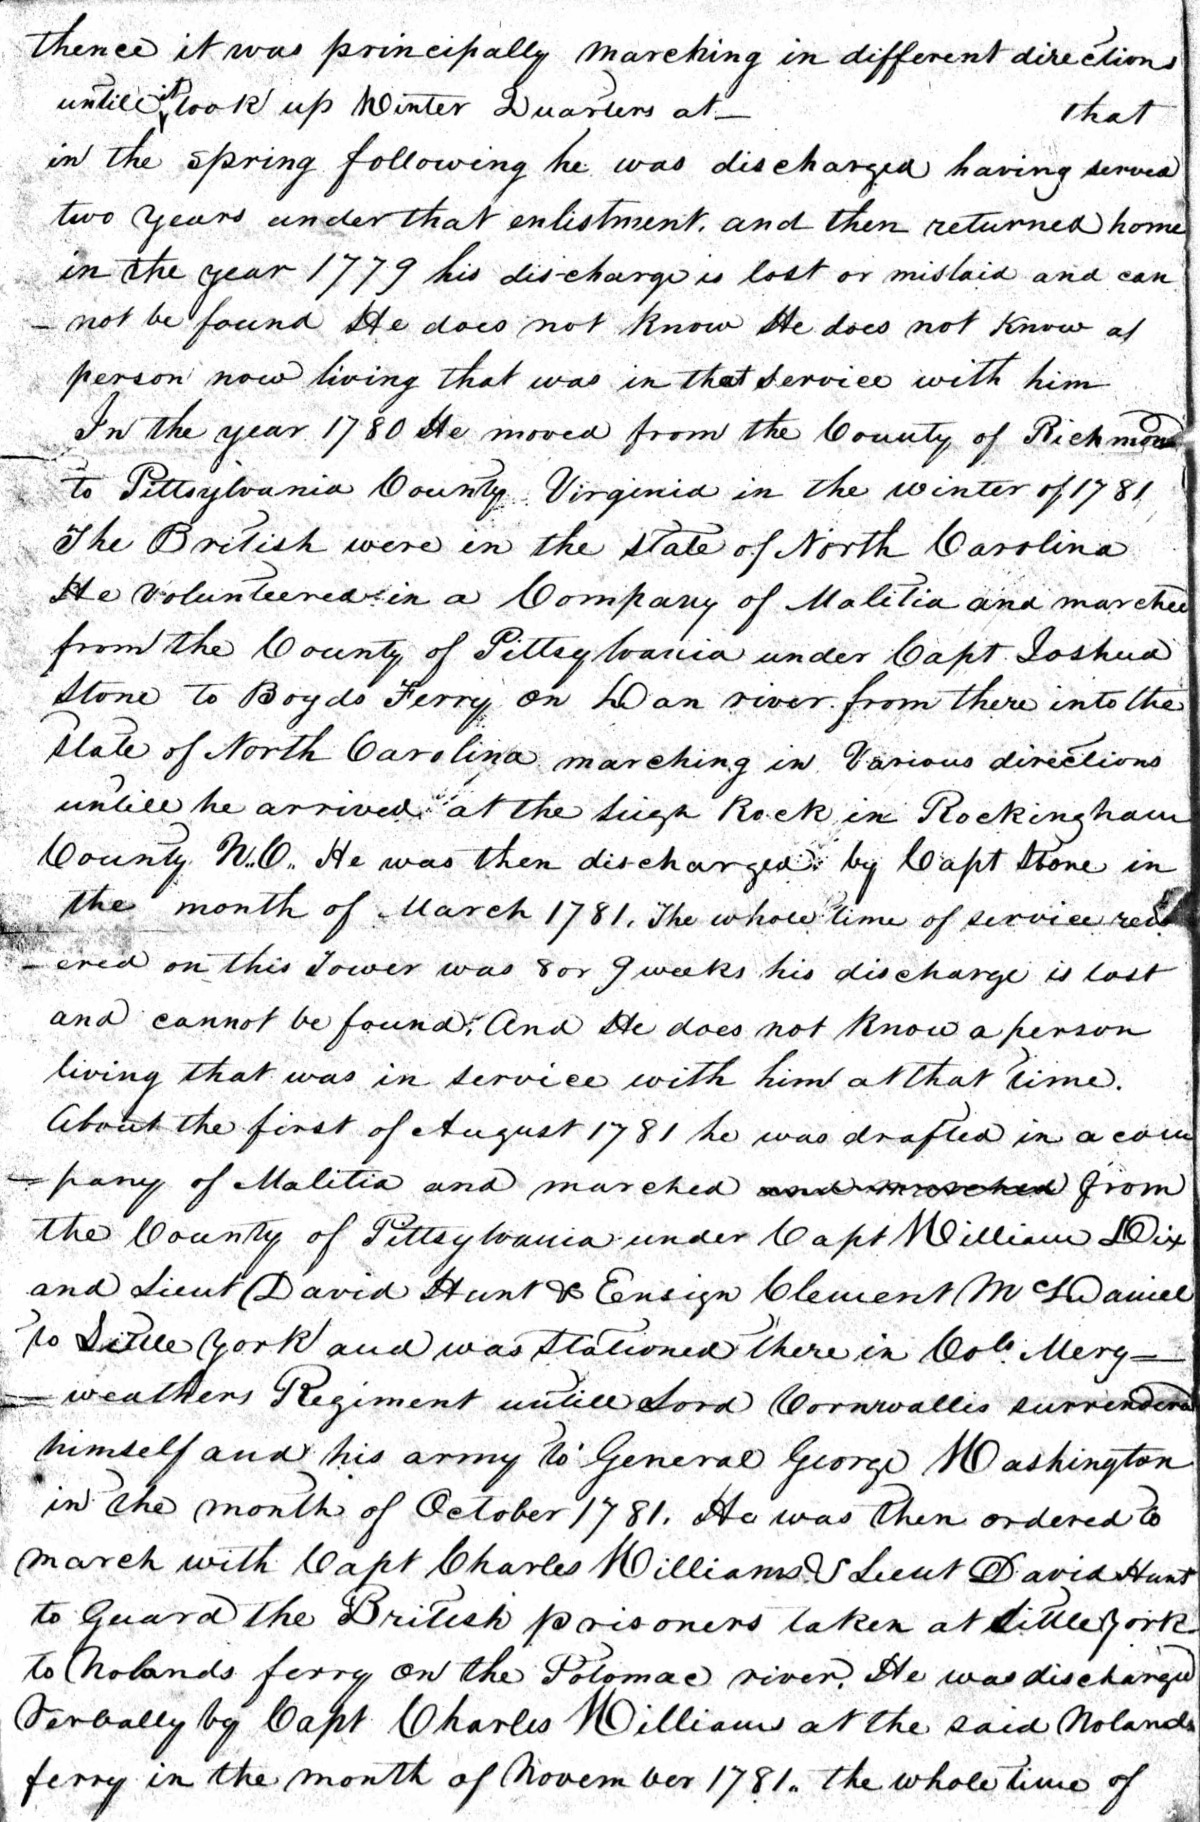 thence it was principally marching in different directions
untill it took up Winter Quarters at — that
in the spring following he was discharged having served
two years under that enlistment. and then returned home
in the year 1779 his discharge is lost or mislaid and can
- not be found He does not know He does not know a
person now living that was in that service with him
In the year 1780 He moved from the County of Richmond
to Pittsylvania County Virginia in the winter of 1781
The British were in the state of North Carolina
He volunteered in a Company of Malitia and marched
from the County of Pittsylvania under Capt Joshua
Stone to Boyds Ferry on Dan river from there into the
state of North Carolina marching in Various directions
untill he arrived at the high Rock in Rockingham
County N.C. He was then discharged by Capt Stone in
the month of March 1781. The whole time of service
- ered on this Tower was 8 or 9 weeks his discharge is lost
and cannot be found. And He does not know a person
living that was in service with him at that time.
About the first of August 1781 he was drafted in a com
- pany of Malitia and marched and marched from
the County of Pittsylvania under Capt William Dix
and Lieut David Hunt & Ensign Clement McDaniel
to Little York and was stationed there in Colo. Mery—
— weathers Regiment untill Lord Cornwallis surrendered
himself and his army to General George Washington
in the month of October 1781. He was then ordered to
march with Capt Charles Williams & Lieut David Hunt
to Guard the British prisoners taken at Little York
to Nolands ferry on the Potomac river. He was discharged
Verbally by Capt Charles Williams at the said Nolands
ferry in the month of November 1781. the whole time of